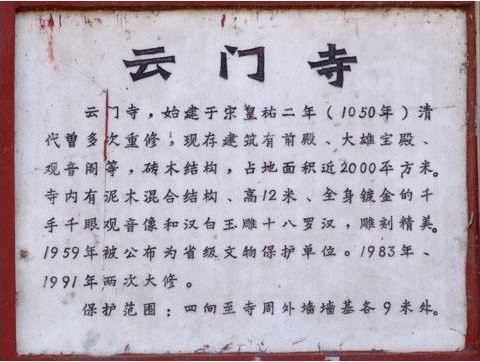 云门寺
云门寺，始建于宋皇祐二年（1050年）清
代曾多次重修，现存建筑有前殿、大雄宝殿、
观音阁等，砖木结构，占地面积近2000平方米。
寺内有泥木混合结构、高12米、全身镀金的千
手千眼观音像和汉白玉雕十八罗汉，雕刻精美。
1959年被公布为省级文物保护单位。1983年、
1991年两次大修。
保护范围：四向至寺周外墙墙基各9米处。